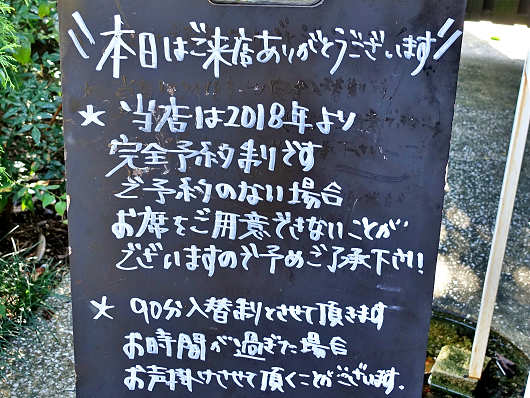 本日はご来店ありがとうございます
★ 当店は2018年より
完全予約制です
ご予約のない場合
お席をご用意できないことが
ございますので予めご了承下さい!
★ 90分入替制とさせて頂きます
お時間が過ぎた場合
お声掛けさせて頂くことがございます.